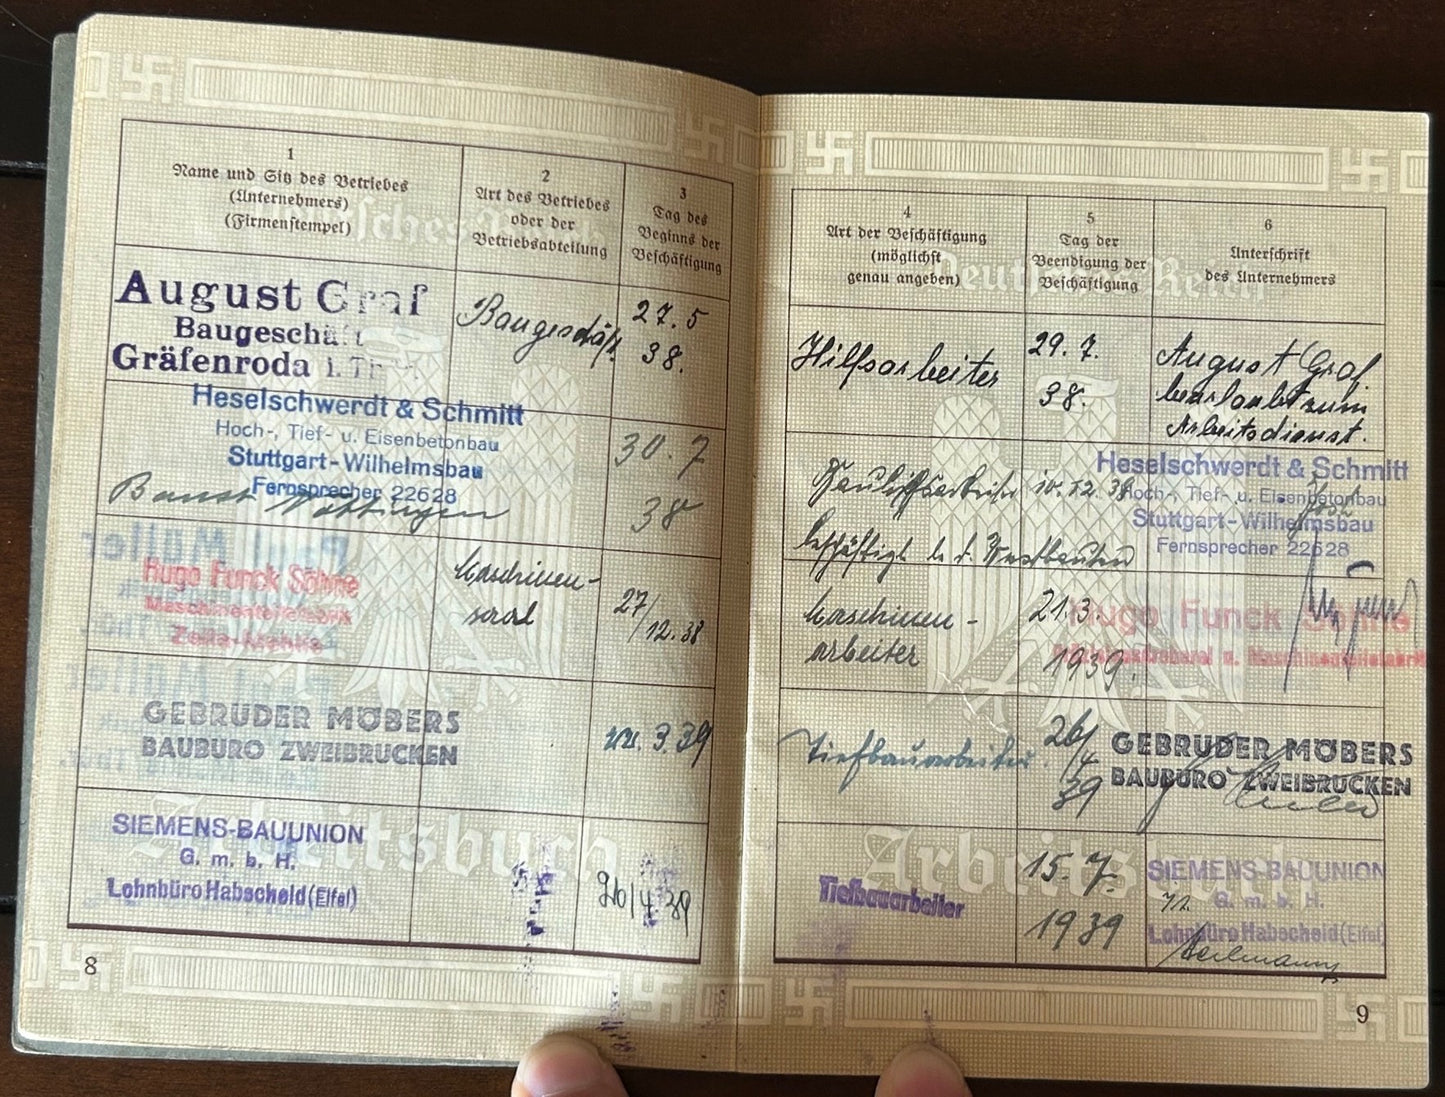 1
Name und Sitz des Betriebes
(Unternehmers)
(Firmenstempel)
2
Art des Betriebes
oder der
Betriebsabteilung
3
Tag des
Beginns der
Beschäftigung
August Graf
Baugeschäft
Gräfenroda i. Th
Baugeschäft.
27. 5
38.
Heselschwerdt & Schmitt
Hoch-, Tief- u. Eisenbetonbau
Stuttgart-Wilhelmsbau
Fernsprecher 22628
30. 7
38
Hugo Funck Söhne
Maschinenteilefabrik
Zella-Mehlis
Maschinen-
saal
27/
12. 38
GEBRÜDER MÖBERS
BAUBÜRO ZWEIBRÜCKEN
22. 3. 39
SIEMENS-BAUUNION
G. m. b. H.
Lohnbüro Habscheid (Eifel)
26/4 39
8
4
Art der Beschäftigung
(möglichst
genau angeben)
5
Tag der
Beendigung der
Beschäftigung
6
Unterschrift
des Unternehmers
Hilfsarbeiter
29. 7.
38.
August Graf
beurlaubt zum
Arbeitsdienst.
Bauhilfsarbeiter
beschäftigt b. d. Westbauten
10. 12. 38
Heselschwerdt & Schmitt
Hoch-, Tief- u. Eisenbetonbau
Stuttgart-Wilhelmsbau
Fernsprecher 22628
Maschinen-
arbeiter
21. 3.
1939.
Hugo Funck Söhne
u. Maschinenteilefabrik
Tiefbauarbeiter
26/
/4
39
GEBRÜDER MÖBERS
BAUBÜRO ZWEIBRÜCKEN
Tiefbauarbeiter
15. 7.
1939
SIEMENS-BAUUNION
G. m. b. H.
Lohnbüro Habscheid (Eifel)
9
Deutsches Reich
Arbeitsbuch
Deutsches Reich
Arbeitsbuch